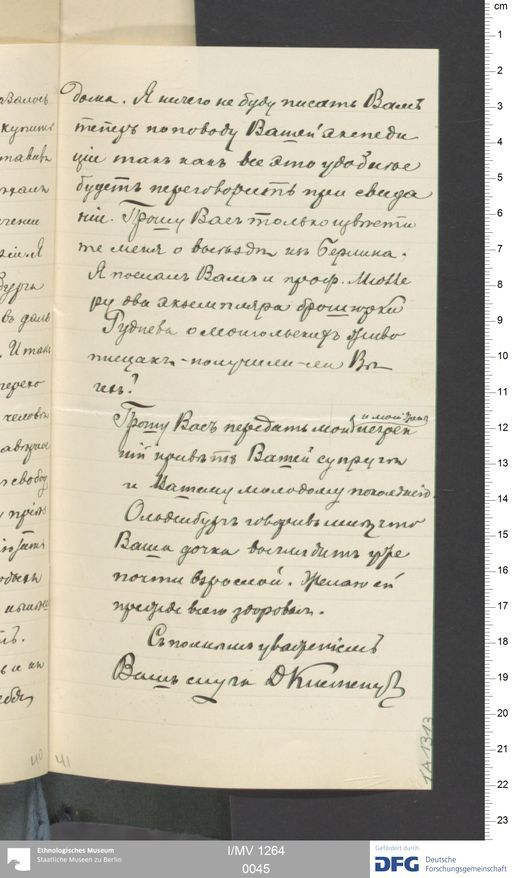 дома. Я ничего не буду писать Вамъ
теперь по поводу Вашей экспеди
ціи такъ какъ все это удобнѣе
будетъ переговорить при свида
ніи. Прошу Васъ только извѣсти
те меня о выѣздѣ изъ Берлина.
Я послалъ Вамъ и проф. Мюлле
ру два экземпляра брошюрки
Руднева о монгольскихъ живо
писцахъ - получили-ли Вы
ихъ?
Прошу Васъ передать мой и моей жены искрен
ній привѣтъ Вашей супругѣ
и Вашему молодому поколѣнію.
Ольденбургъ говорилъ мнѣ что
Ваша дочка выглядитъ уже
почти взрослой. Желаю ей
прежде всего здоровья.
Съ полнымъ уваженіемъ
Вашъ слуга ДКлеменцъ
40 41
1A 1313
cm
1
2
3
4
5
6
7
8
9
10
11
12
13
14
15
16
17
18
19
20
21
22
23
Ethnologisches Museum
Staatliche Museen zu Berlin
I/MV 1264
0045
Gefördert durch
DFG Deutsche
Forschungsgemeinschaft